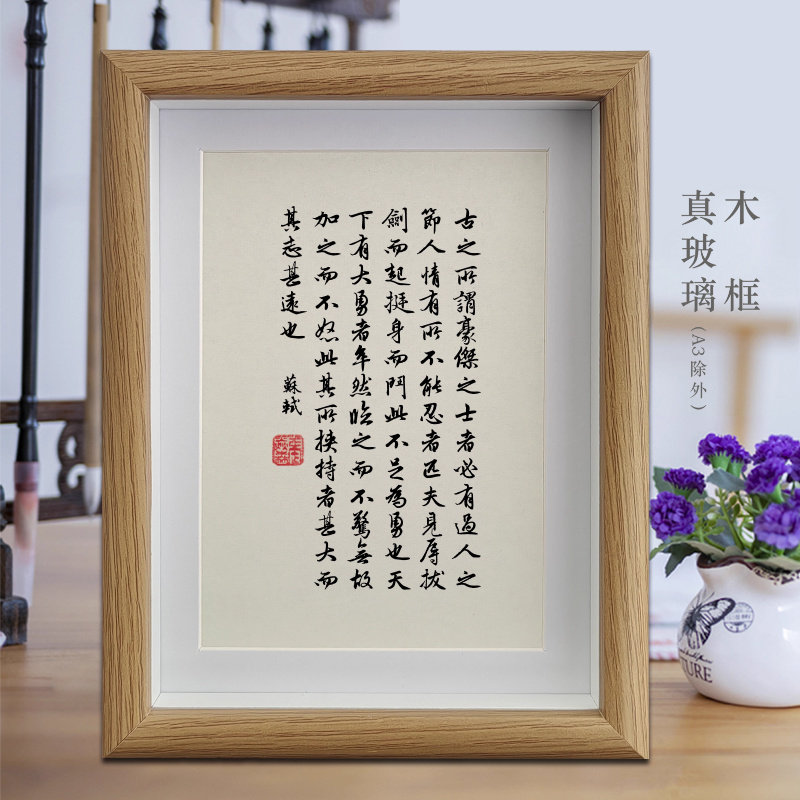 古之所謂豪傑之士者必有過人之
節人情有所不能忍者匹夫見辱拔
劍而起挺身而鬥此不足為勇也天
下有大勇者卒然臨之而不驚無故
加之而不怒此其所挾持者甚大而
其志甚遠也
蘇軾
木框
真玻璃(A3除外)
TURE